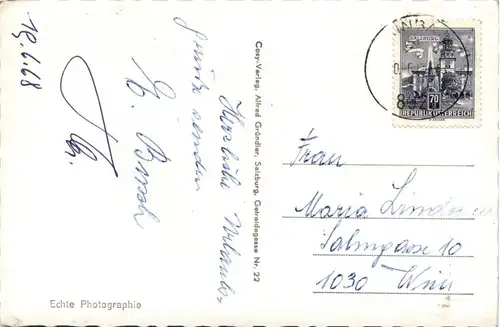 19.6.68
Herzliche Urlaubs-
grüsse senden
Cosy-Verlag, Alfred Gründler, Salzburg, Getreidegasse Nr. 22
Echte Photographie
SALZBURG
70
REPUBLIK ÖSTERREICH
Frau
Maria
Salmgasse 10
1030 Wien